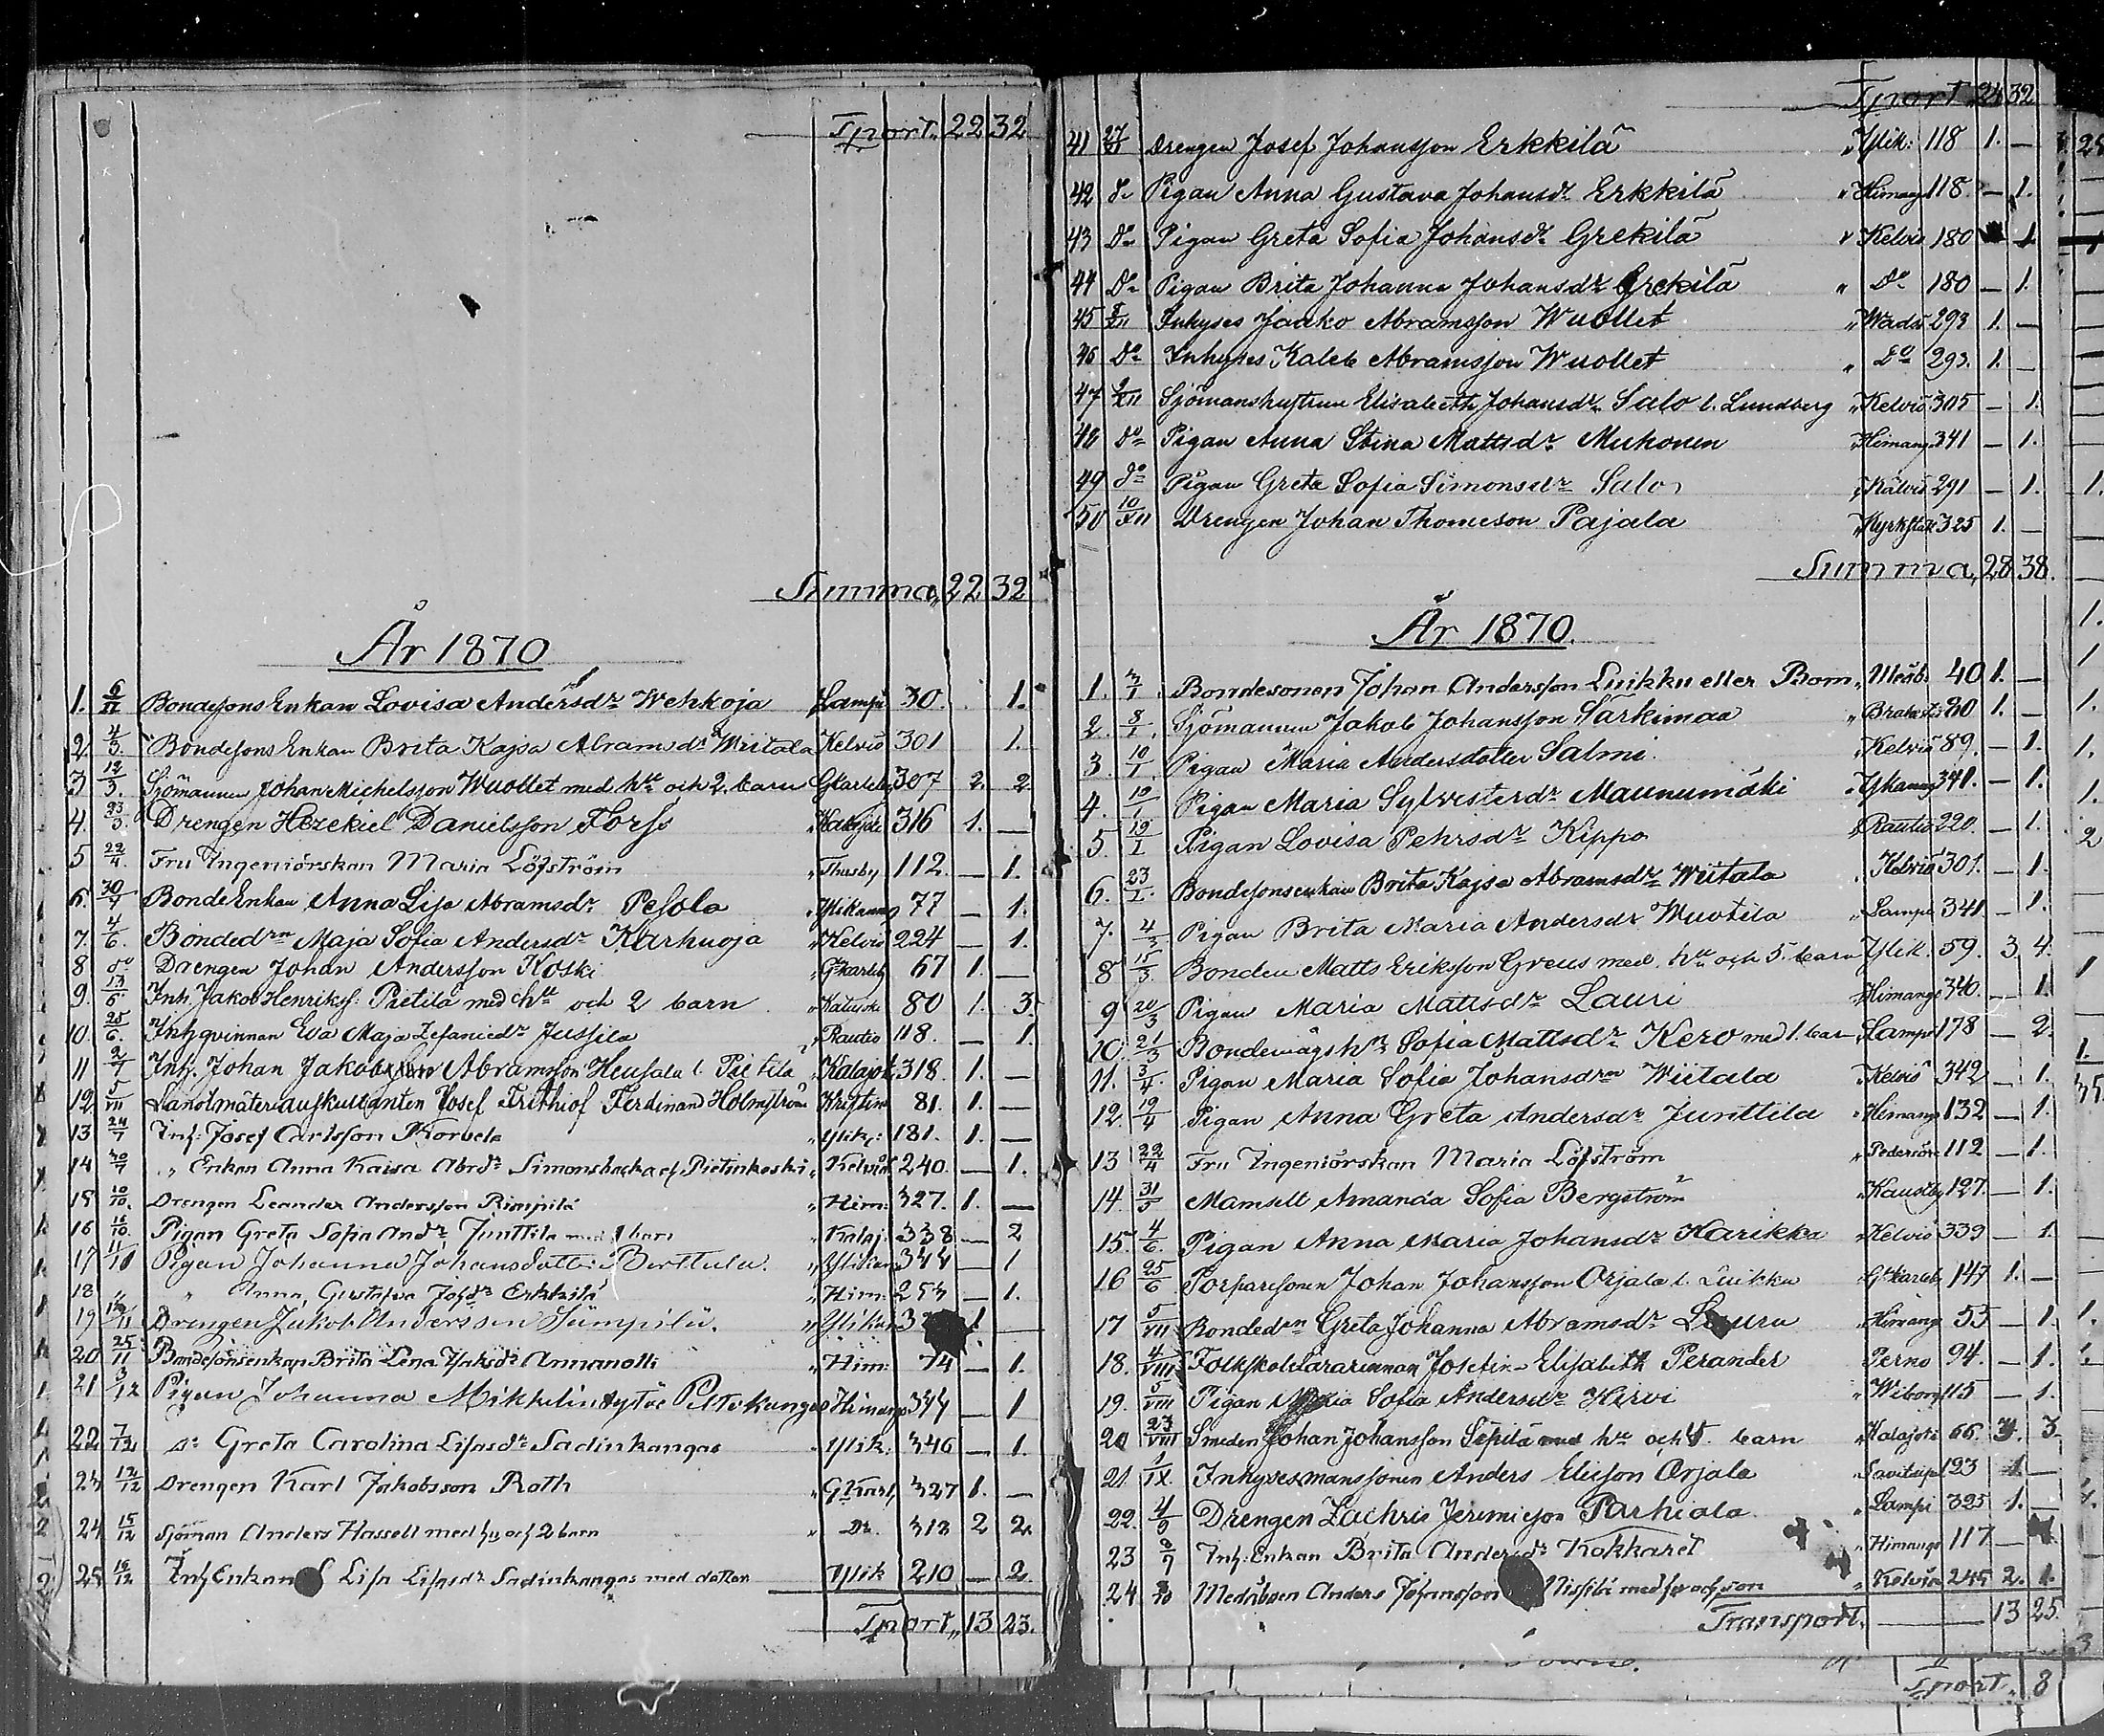 Tport. 22 32
Summa, 22 32
År 1870
1. 6/II Bondesons Enkan Lovisa Andersdr Wehkoja Lampi 30. 1.
2. 4/3. Bondesons Enkan Brita Kajsa Abramsdr Wiitala Kelviå 301 1.
3 12/3. Sjömannen Johan Michelsson Wuollet med hu och 2 barn Gkarleby 307 2. 2
4. 23/3. Drengen Hezekiel Danielsson Forss Kalajoki 316 1. —
5 22/4. Fru Ingeniörskan Maria Löfström Thusby 112. — 1.
6. 30/4 BondeEnkan Anna Lisa Abramsdr Pesola Ylikannus 77 — 1.
7. 4/6. Bondedrn Maja Sofia Andersdr Karhuoja Kelviå 224 — 1.
8 do Drengen Johan Andersson Koski Gkarleby 67 1. —
9. 13/6. Inh. Jakob Henrikss: Pietilä med hu och 2 barn Kalajoki 80 1. 3.
10. 25/6. Inhqvinnan Eva Maja Zefaniedr Jussila Rautio 118. — 1.
11 2/7 Inh. Johan Jakob Abramsson Heusala l. Pietilä Kalajoki 318. 1. —
12 5/VII Landtmäteriauskultanten Josef Frithiof Ferdinand Holmström Kristine 81. 1. —
13 24/7 Inh: Josef Carlsson Korvela Ylik: 181. 1. —
14 30/7 " Enkan Anna Kaisa Abrdr Simonsbacka el. Pietinkoski Kelviå 240. — 1.
15 10/10. Drengen Leander Andersson Rimpilä Him: 327. 1. —
16 16/10. Pigan Greta Sofia Andr Junttila med 1 barn Kalaj. 338 — 2
17 11/11 Pigan Johanna Johansdotter Berttula. Ylikan 344 — 1
18 " " Anna Gustafva Johdr Erkkilä Him: 257 — 1.
19 /11 Drengen Jakob Andersson Jümpilü. Ylikan 1 —
20 25/11 Bondesonsenkan Brita Lena Isaksdr Annanolli Him: 74 — 1.
21 3/12 Pigan Johanna Mikkelintytär Peltokangas Himango 344 — 1
22 7/12 do Greta Carolina Lisasdr Sadinkangas Ylik: 346 — 1.
23 12/12 Drengen Karl Jakobsson Roth GKarl, 327 1. —
24 15/12 Sjöman Anders Hassell med hu och 2 barn Do. 313 2 2.
25 16/12 Inh Enkan Lisa Lisasdr Sadinkangas med dotter Ylik 210 — 2.
Tport, 13 23.
Tport 24 32
41 27/XI Drengen Josef Johansson Erkkilä Ylik: 118 1. —
42 do Pigan Anna Gustava Johansdr Erkkilä Himang 118. — 1.
43 Do Pigan Greta Sofia Johansdr Grekilä Kelviå 180 1
44 Do Pigan Brita Johanna Johansdr Grekilä " Do 180 — 1.
45 /XII Inhyses Jaako Abramsson Wuollet Wadsö 293 1. —
46 Do Inhyses Kaleb Abramsson Wuollet " Do 293. 1. —
47 9/XII Sjömanshustrun Elisabeth Johansdr Salo l. Lundberg Kelviå 305 — 1.
48 do Pigan Anna Stina Mattsdr Muhonen Himango 341 — 1.
49 do Pigan Greta Sofia Simonsdr Salo Kälviå 291 — 1.
50 10/XII Drengen Johan Thomeson Pajala Kyrkslätt 325 1. —
Summa, 28 38.
År 1870.
1. /1 Bondesonen Johan Andersson Luikku eller Bom Uleåb. 40 1. —
2. 8/1. Sjömannen Jakob Johansson Särkimaa Brahest. 280 1. —
3. 10/1 Pigan Maria Andersdotter Salmi. Kelviå 89. — 1.
4. 10/1 Pigan Maria Sylvesterdr Maunumäki Ykannus 341. — 1.
5. 19/1 Pigan Lovisa Pehrsdr Kippo Rautio 220. — 1.
6. 23/1. Bondesonsenkan Brita Kajsa Abramsdr Wiitala Kelviå 301. — 1.
7. 4/3. Pigan Brita Maria Andersdr Wuotila Lampi 341 — 1.
8 15/3. Bonden Matts Eriksson Greus med hu och 5 barn Ylik. 59. 3. 4.
9 20/3 Pigan Maria Mattsdr Lauri Himango 340. — 1.
10. 21/3 Bondemågsh Sofia Mattsdr Kero med 1. barn Lampi 178 — 2.
11. 3/4. Pigan Maria Sofia Johansdrn Wiitala Kelviå 342 — 1.
12. 19/4 Pigan Anna Greta Andersdr Junttila Himango 132 — 1.
13 22/4 Fru Ingeniörskan Maria Löfström Pedersöre 112 — 1.
14. 31/5 Mamsell Amanda Sofia Bergström Kaustby 127. — 1.
15. 4/6. Pigan Anna Maria Johansdr Karikka Kelviå 339 — 1.
16 25/6 Torparesonen Johan Johansson Orjala l. Luikku Gkarleby 147 1. —
17 5/VII Bondedrn Greta Johanna Abramsdr Himango 53 — 1.
18. 4/VIII Folkskolelärarinnan Josefin Elisabeth Perander Perno 94. — 1.
19. 5/VIII Pigan Maria Sofia Andersdr Hirvi Wiborg 115 — 1.
20 23/VIII Smeden Johan Johansson Sepilä med hu och 5 barn Kalajoki 66. 3.
21. 1/IX. Inhysesmanssonen Anders Eliesson Orjala Savitaipal 123 1. —
22. 4/9 Drengen Zachris Jeremiesson Parhiala. Lampi 325 1. —
23 2/9 Inh. Enkan Brita Andersdr Kokkaret Himango 117 —
24 /10 Anders Johansson Nissilä med hu och son Kelviå 245 2. 1.
Transport. 13 25.
Tport. 8